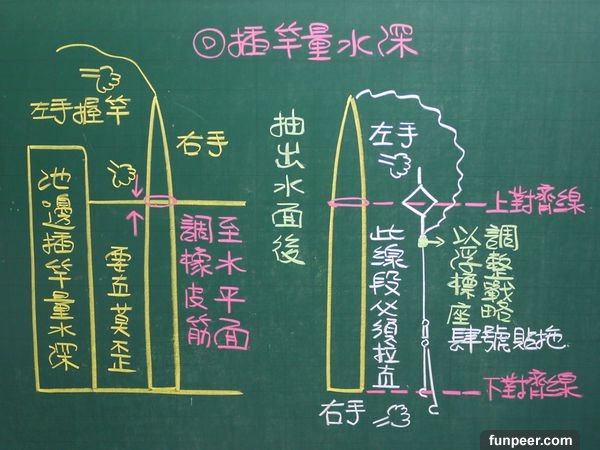 ◎插竿量水深
左手握竿
右手
池邊插竿量水深
要直莫歪
至水平面
調橡皮筋
抽出水面後
左手
上對齊線
此線段必須拉直
調整戰略
以浮標座
肆號貼拖
下對齊線
右手
funpeer.com